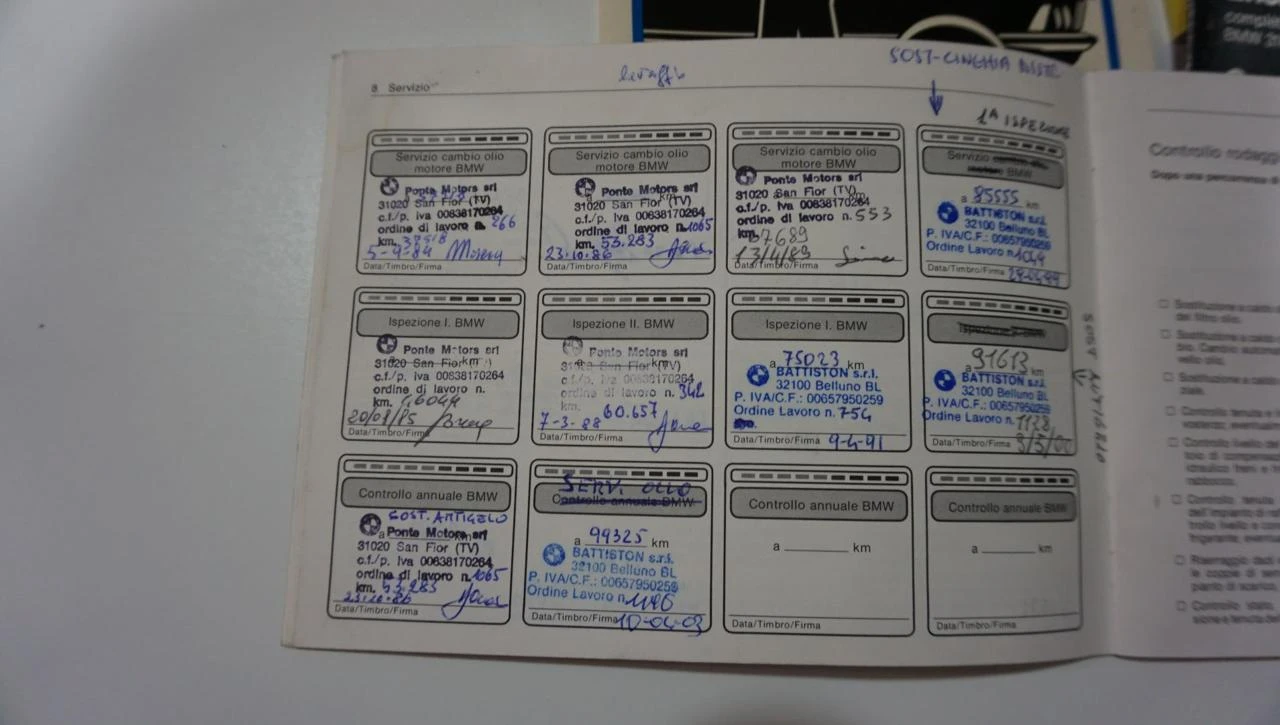 comple
BMW 3
SOST-CINGHIA
8 Servizio
1ª ISPEZIONE
Servizio cambio olio
motore BMW
Ponte Motors srl
31020 San Fior (TV)
c.f./p. iva 00838170264
ordine di lavoro n. 266
km.
5-9-84
Data/Timbro/Firma
Servizio cambio olio
motore BMW
Ponte Motors srl
31020 San Fior (TV)
c.f./p. iva 00838170264
ordine di lavoro n. 1065
km. 53.283
23.10.86
Data/Timbro/Firma
Servizio cambio olio
motore BMW
Ponte Motors srl
31020 San Fior (TV)
c.f./p. iva 00838170264
ordine di lavoro n. 553
km. 67689
13/4/89
Data/Timbro/Firma
Servizio cambio olio
motore BMW
a 85555 km
BATTISTON s.r.l.
32100 Belluno BL
P. IVA/C.F.: 00657950259
Ordine Lavoro n.
Data/Timbro/Firma
Ispezione I. BMW
Ponte Motors srl
31020 San Fior (TV)
c.f./p. iva 00838170264
ordine di lavoro n.
km.
20/08/85
Data/Timbro/Firma
Ispezione II. BMW
Ponte Motors srl
31020 San Fior (TV)
c.f./p. iva 00838170264
ordine di lavoro n. 342
km. 60.657
7-3-88
Data/Timbro/Firma
Ispezione I. BMW
a 75023 km
BATTISTON s.r.l.
32100 Belluno BL
P. IVA/C.F.: 00657950259
Ordine Lavoro n. 754
Data/Timbro/Firma 9-4-91
a 91613 km
BATTISTON s.r.l.
32100 Belluno BL
P. IVA/C.F.: 00657950259
Ordine Lavoro n. 1138
Data/Timbro/Firma
SOST
Controllo annuale BMW
SOST. ANTIGELO
a Ponte Motors srl
31020 San Fior (TV)
c.f./p. iva 00838170264
ordine di lavoro n. 1065
km. 53.283
23.10.86
Data/Timbro/Firma
SERV. OLIO
Controllo annuale BMW
a 99325 km
BATTISTON s.r.l.
32100 Belluno BL
P. IVA/C.F.: 00657950259
Ordine Lavoro n.
Data/Timbro/Firma 10-04-03
Controllo annuale BMW
a km
Data/Timbro/Firma
Controllo annuale BMW
a km
Data/Timbro/Firma
Controllo rodagg
Dopo una percorrenza di
Sostituzione a caldo
del filtro olio.
Sostituzione a caldo
bio. Cambio autom
Sostituzione a caldo
Controllo tenuta e
Controllo livello de
toio di compensa
idraulico freni e fr
rabbocco.
Controllo tenuta
dell'impianto di
trollo livello e con
Controllo stato,